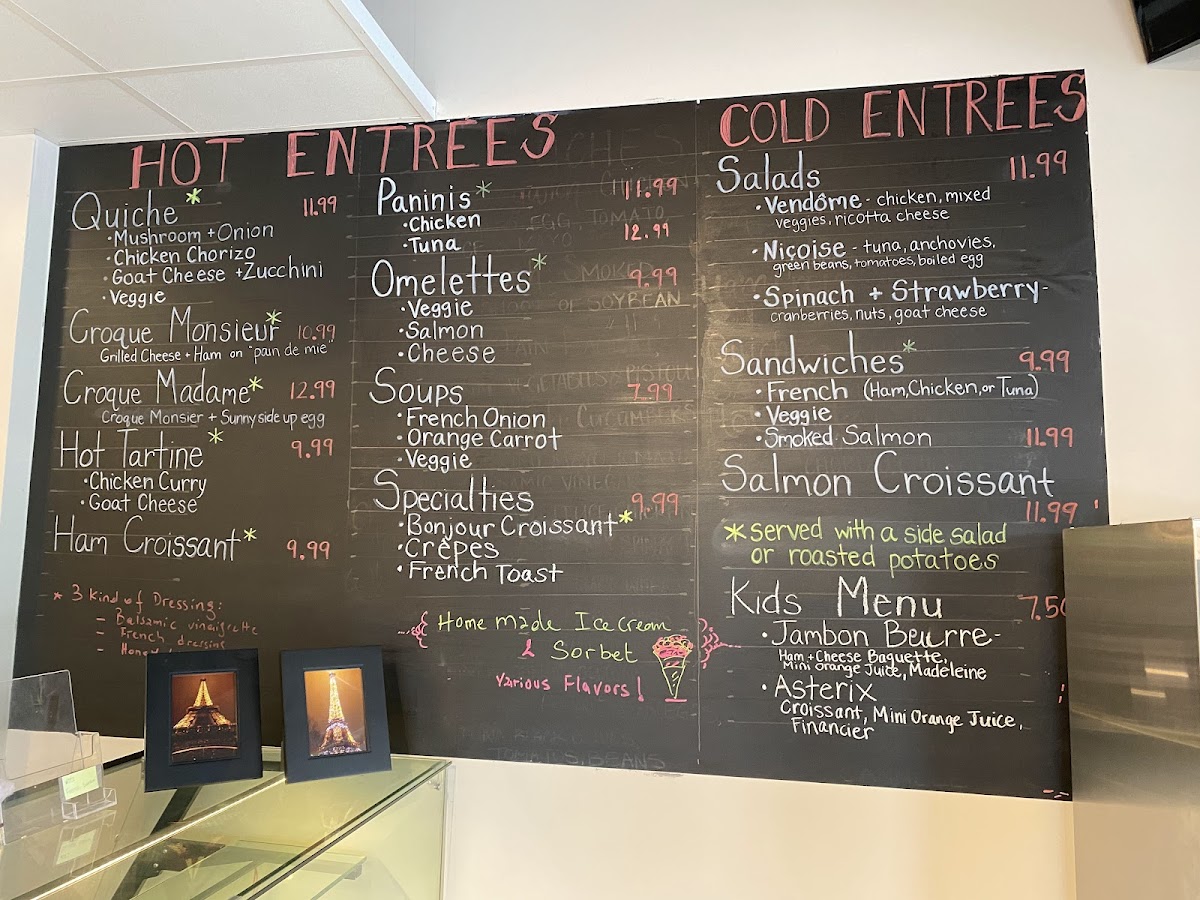 HOT ENTREES
Quiche* 11.99
• Mushroom + Onion
• Chicken Chorizo
• Goat Cheese + Zucchini
• Veggie
Croque Monsieur* 10.99
Grilled Cheese + Ham on "pain de mie"
Croque Madame* 12.99
Croque Monsier + Sunny side up egg
Hot Tartine* 9.99
• Chicken Curry
• Goat Cheese
Ham Croissant* 9.99
* 3 Kind of Dressing:
- Balsamic vinaigrette
- French dressing
Paninis* 11.99
• Chicken
• Tuna 12.99
Omelettes* 9.99
• Veggie
• Salmon
• Cheese
Soups 7.99
• French Onion
• Orange Carrot
• Veggie
Specialties 9.99
• Bonjour Croissant*
• Crêpes
• French Toast
Home made Ice cream
& Sorbet
Various Flavors!
COLD ENTREES
Salads 11.99
• Vendôme - chicken, mixed
veggies, ricotta cheese
• Niçoise - tuna, anchovies,
green beans, tomatoes, boiled egg
• Spinach + Strawberry -
cranberries, nuts, goat cheese
Sandwiches* 9.99
• French (Ham, Chicken, or Tuna)
• Veggie
• Smoked Salmon 11.99
Salmon Croissant
11.99
* served with a side salad
or roasted potatoes
Kids Menu 7.50
• Jambon Beurre -
Ham + Cheese Baguette,
Mini Orange Juice, Madeleine
• Asterix
Croissant, Mini Orange Juice,
Financier